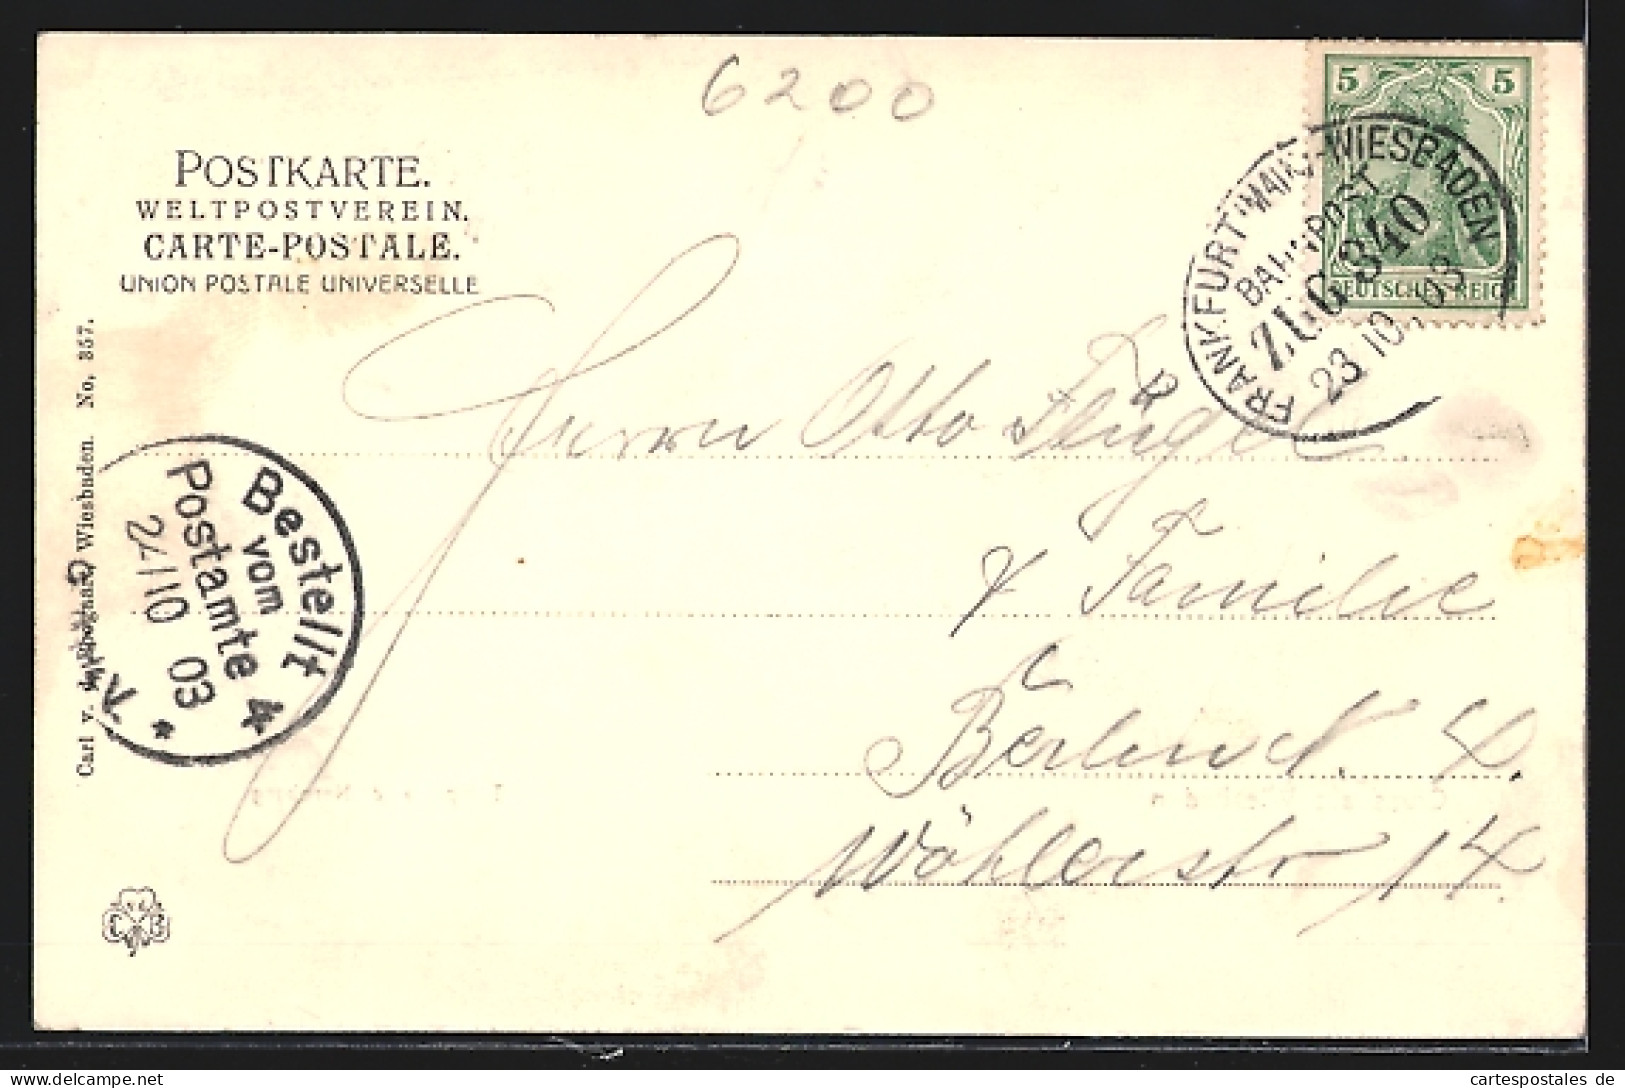 6200
POSTKARTE.
WELTPOSTVEREIN.
CARTE-POSTALE.
UNION POSTALE UNIVERSELLE
5 5
DEUTSCHES REICH
FRANKFURT (MAIN)-WIESBADEN
BAHNPOST
ZUG 340
23 10. 03
Herrn Otto Flügel
& Familie
Berlin N. 4.
Wöhlerstr 14
Bestellt
vom
Postamte 4
24/10 03
Carl v. d. Wiesbaden. No, 357.
cartespostales de